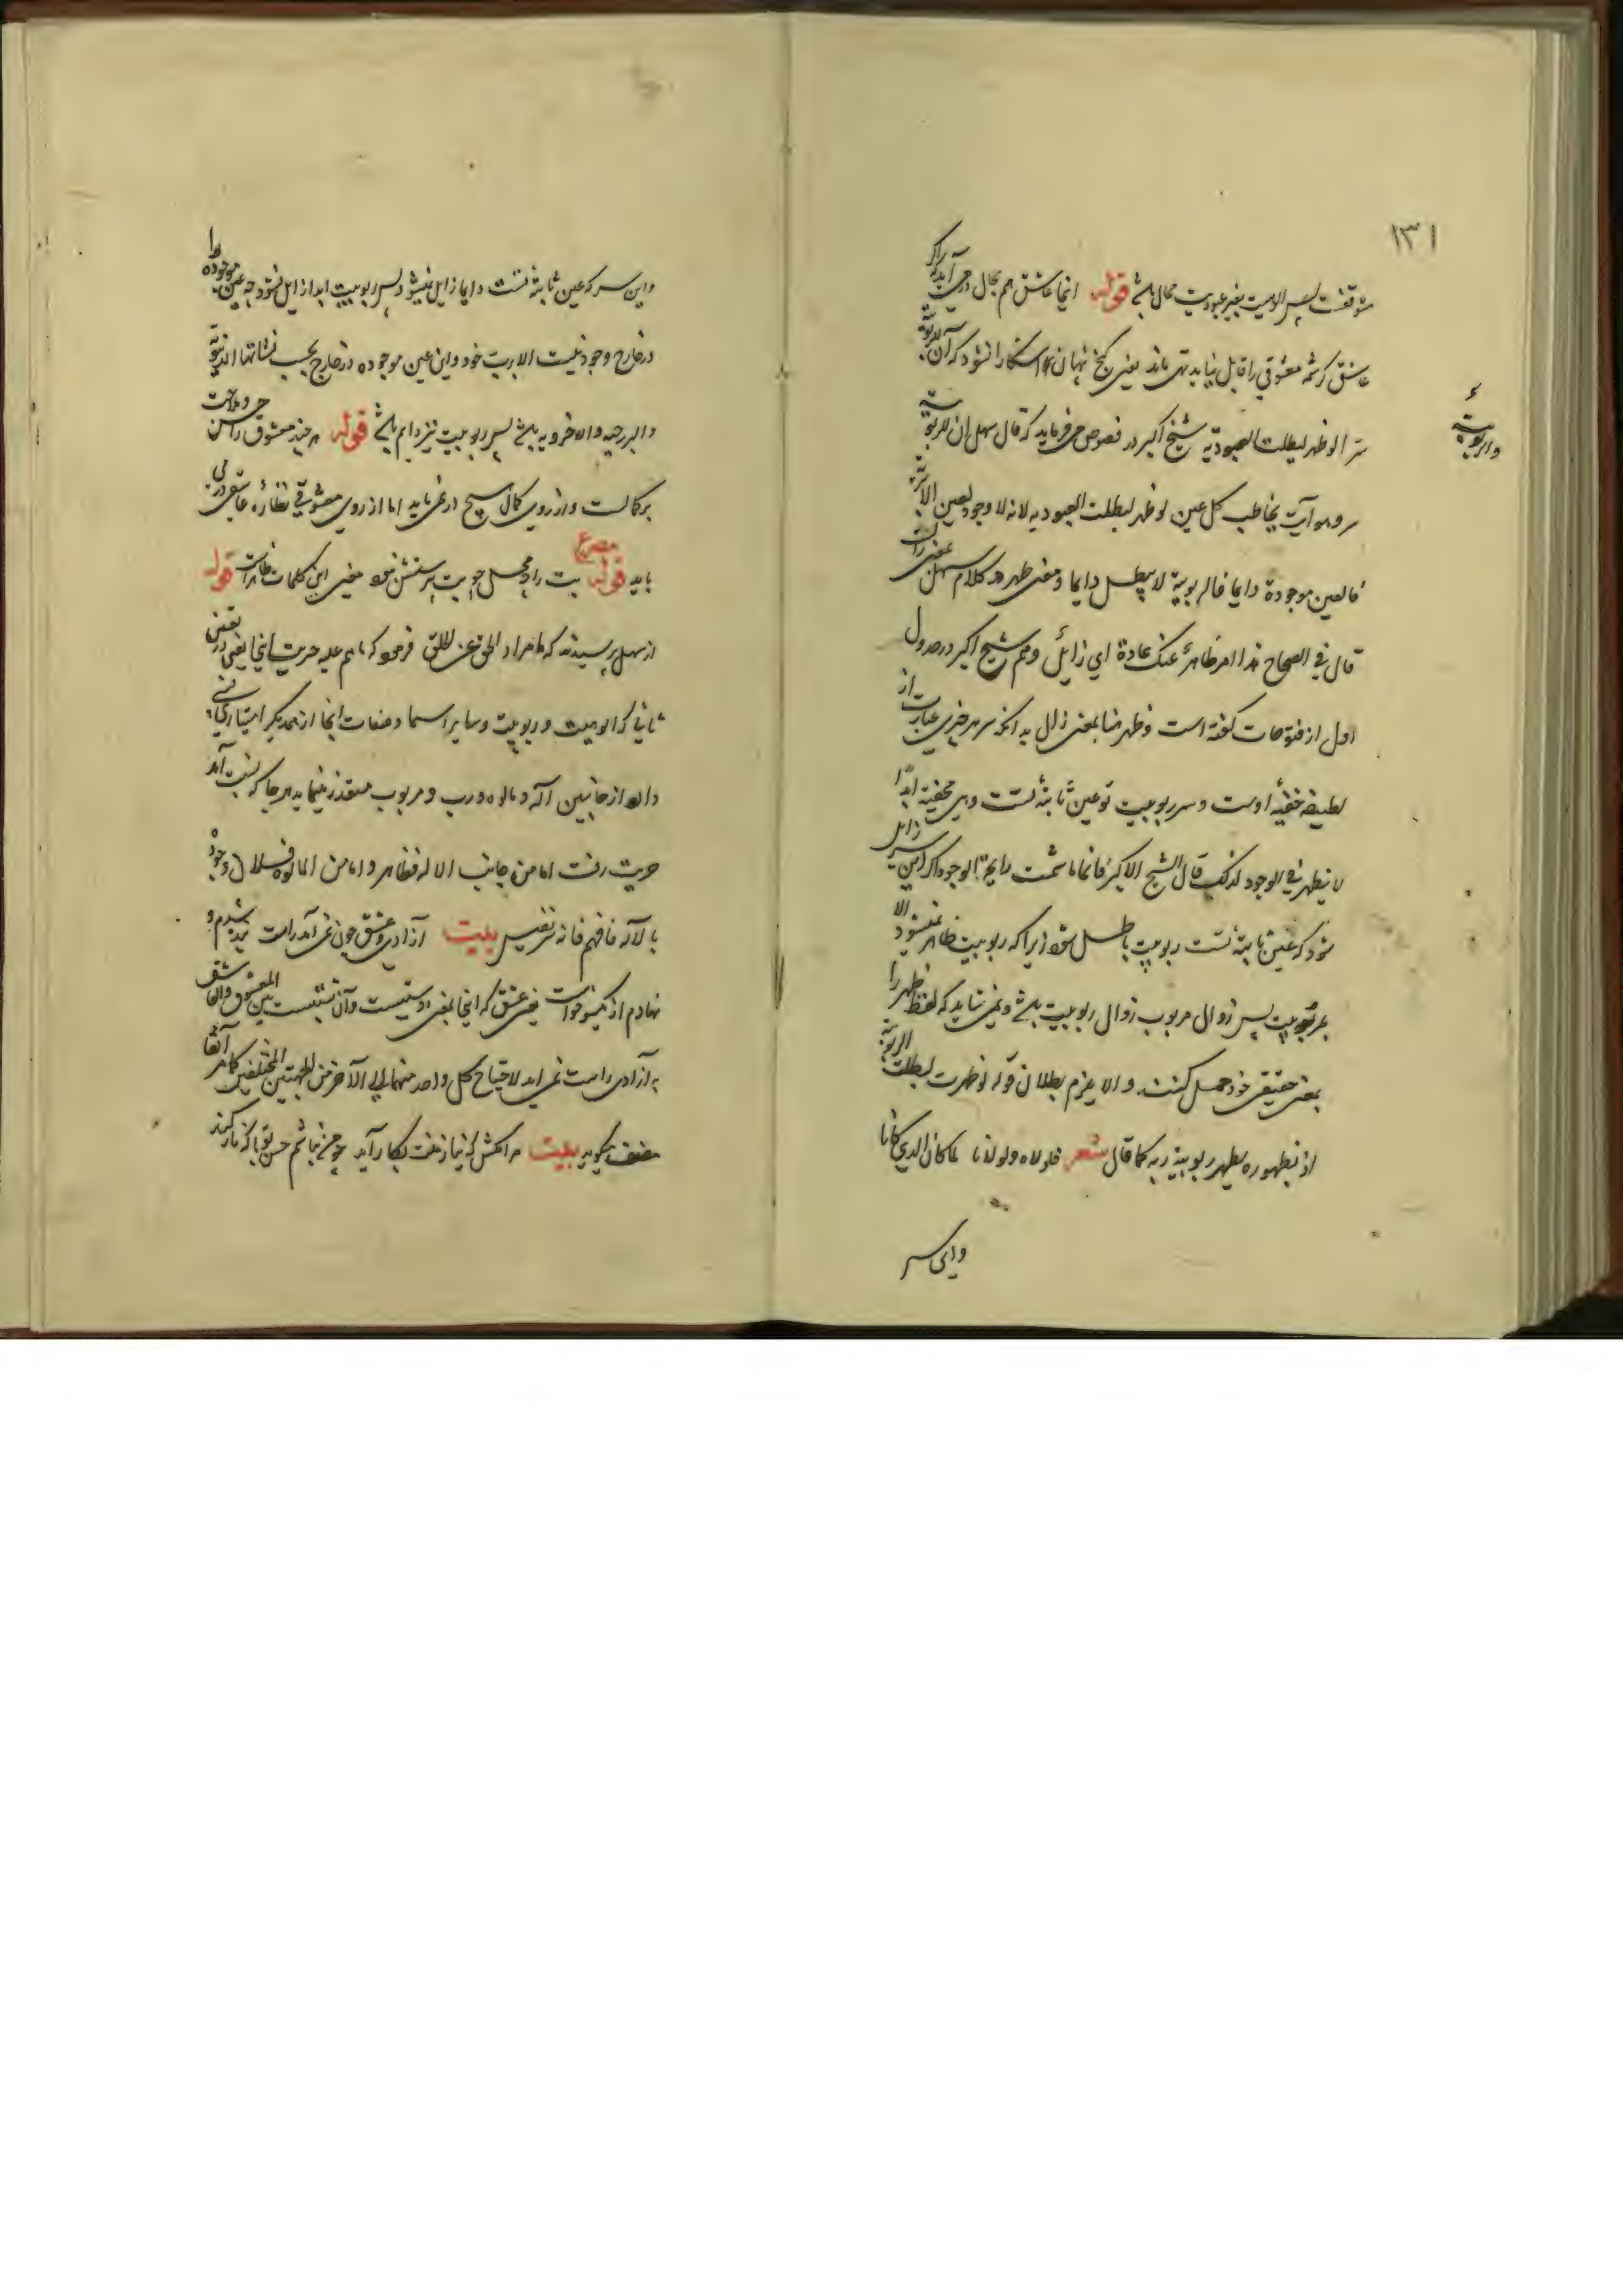 ۱۳۱
متوقفست پس الوهیت بغیر عبودیت محال باشد قوله اینجا عاشق هم بحال در می آید که اگر
عاشق کرشمه معشوقی را قابل نیاید تهی ماند یعنی گنج نهان آشکارا نشود که آن للربوبیة
سرّ لو ظهر لبطلت العبودیه شیخ اکبر در فصوص می فرماید که قال سهل ان للربوبیة
سر وهو انت یخاطب کل عین لو ظهر لبطلت العبودیه لانه لا وجود لعین الا بربه
فالعین موجودة دایما فالربوبیة لا یبطل دایما و معنی ظهر در کلام سهل بمعنی زالست
قال فی الصحاح هذا امر ظاهر عنک عارة ای زائل و هم شیخ اکبر در جدول
اول از فتوحات گفته است و ظهر هنا بمعنی زال بدانکه سر هر چیزی عبارت از
لطیفه خفیهٔ اوست و سر ربوبیت تو عین ثابتهٔ تست و هی مخفیة ابدًا
لا یظهر فی الوجود لذلک قال الشیخ الاکبر فانها ما شمت رایحة الوجود اگر این سر زایل
شود که عین ثابتهٔ تست ربوبیت باطل شود زیرا که ربوبیت ظاهر نمیشود الا
بمربوبیت پس زوال مربوب زوال ربوبیت باشد و نمی شاید که لفظ ظهر را
بمعنی حقیقی خود حمل کنند و الا یلزم بطلان قوله لو ظهرت لبطلت الربوبیة
اذ بظهوره یظهر ربوبیة ربه کما قال شعر فلولاه ولولانا لما کان الذی کانا
و این سر
والربوبیة
و این سر که عین ثابتهٔ تست دایما زایل نمیشود پس ربوبیت ابدا زایل نشود چه عین موجوده را
در خارج وجود نیست الا برب خود و این عین موجوده در خارج بحسب نشاتها الدنیویة
والبرزخیه والاخرویه باشد پس ربوبیت نیز دایم باشد قوله هر چند معشوق را حسن و ملاحت
بر کمالست و از روی کمال هیچ در نمی باید اما از روی معشوقی نظارهٔ عاشقی در می
باید قوله مصرع بت را چه محل چو بت پرستش نبود معنی این کلمات ظاهرست قوله
از سهل پرسیدند که ما مراد الحق عن الخلق فرمود که ما هم علیه حریت اینجا یعنی در تعین
ثانی که الوهیت و ربوبیت و سایر اسما و صفات اینجا از همدیگر امتیازی نسبی
دارد از جانبین اله و مالوه و رب و مربوب متعذر مینماید هر جا که نسبت آمد
حریت رفت اما من جانب الاله فظاهر و اما من المالوه فلان وجوده
بالاله فافهم فانه نفیس بیت آزادی و عشق چون نمی آمد راست بنده شدم و
نهادم از یکسو خواست یعنی عشق که اینجا بمعنی دوستیست و آن نسبتیست بین المعشوق والعاشق
به آزادی راست نمی آید لاحتیاج کل واحد منهما الی الآخر من الجهتین المختلفین کما مر آنفا
مصنف میگوید بیت مراکش که نیاز منت بکار آید چو من نباشم حسن تو با که ناز کند